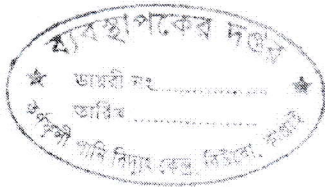 ব্যবস্থাপকের দপ্তর
ডায়রী নং
তারিখ
কর্ণফুলী পানি বিদ্যুৎ কেন্দ্র, বিউবো, কাপ্তাই